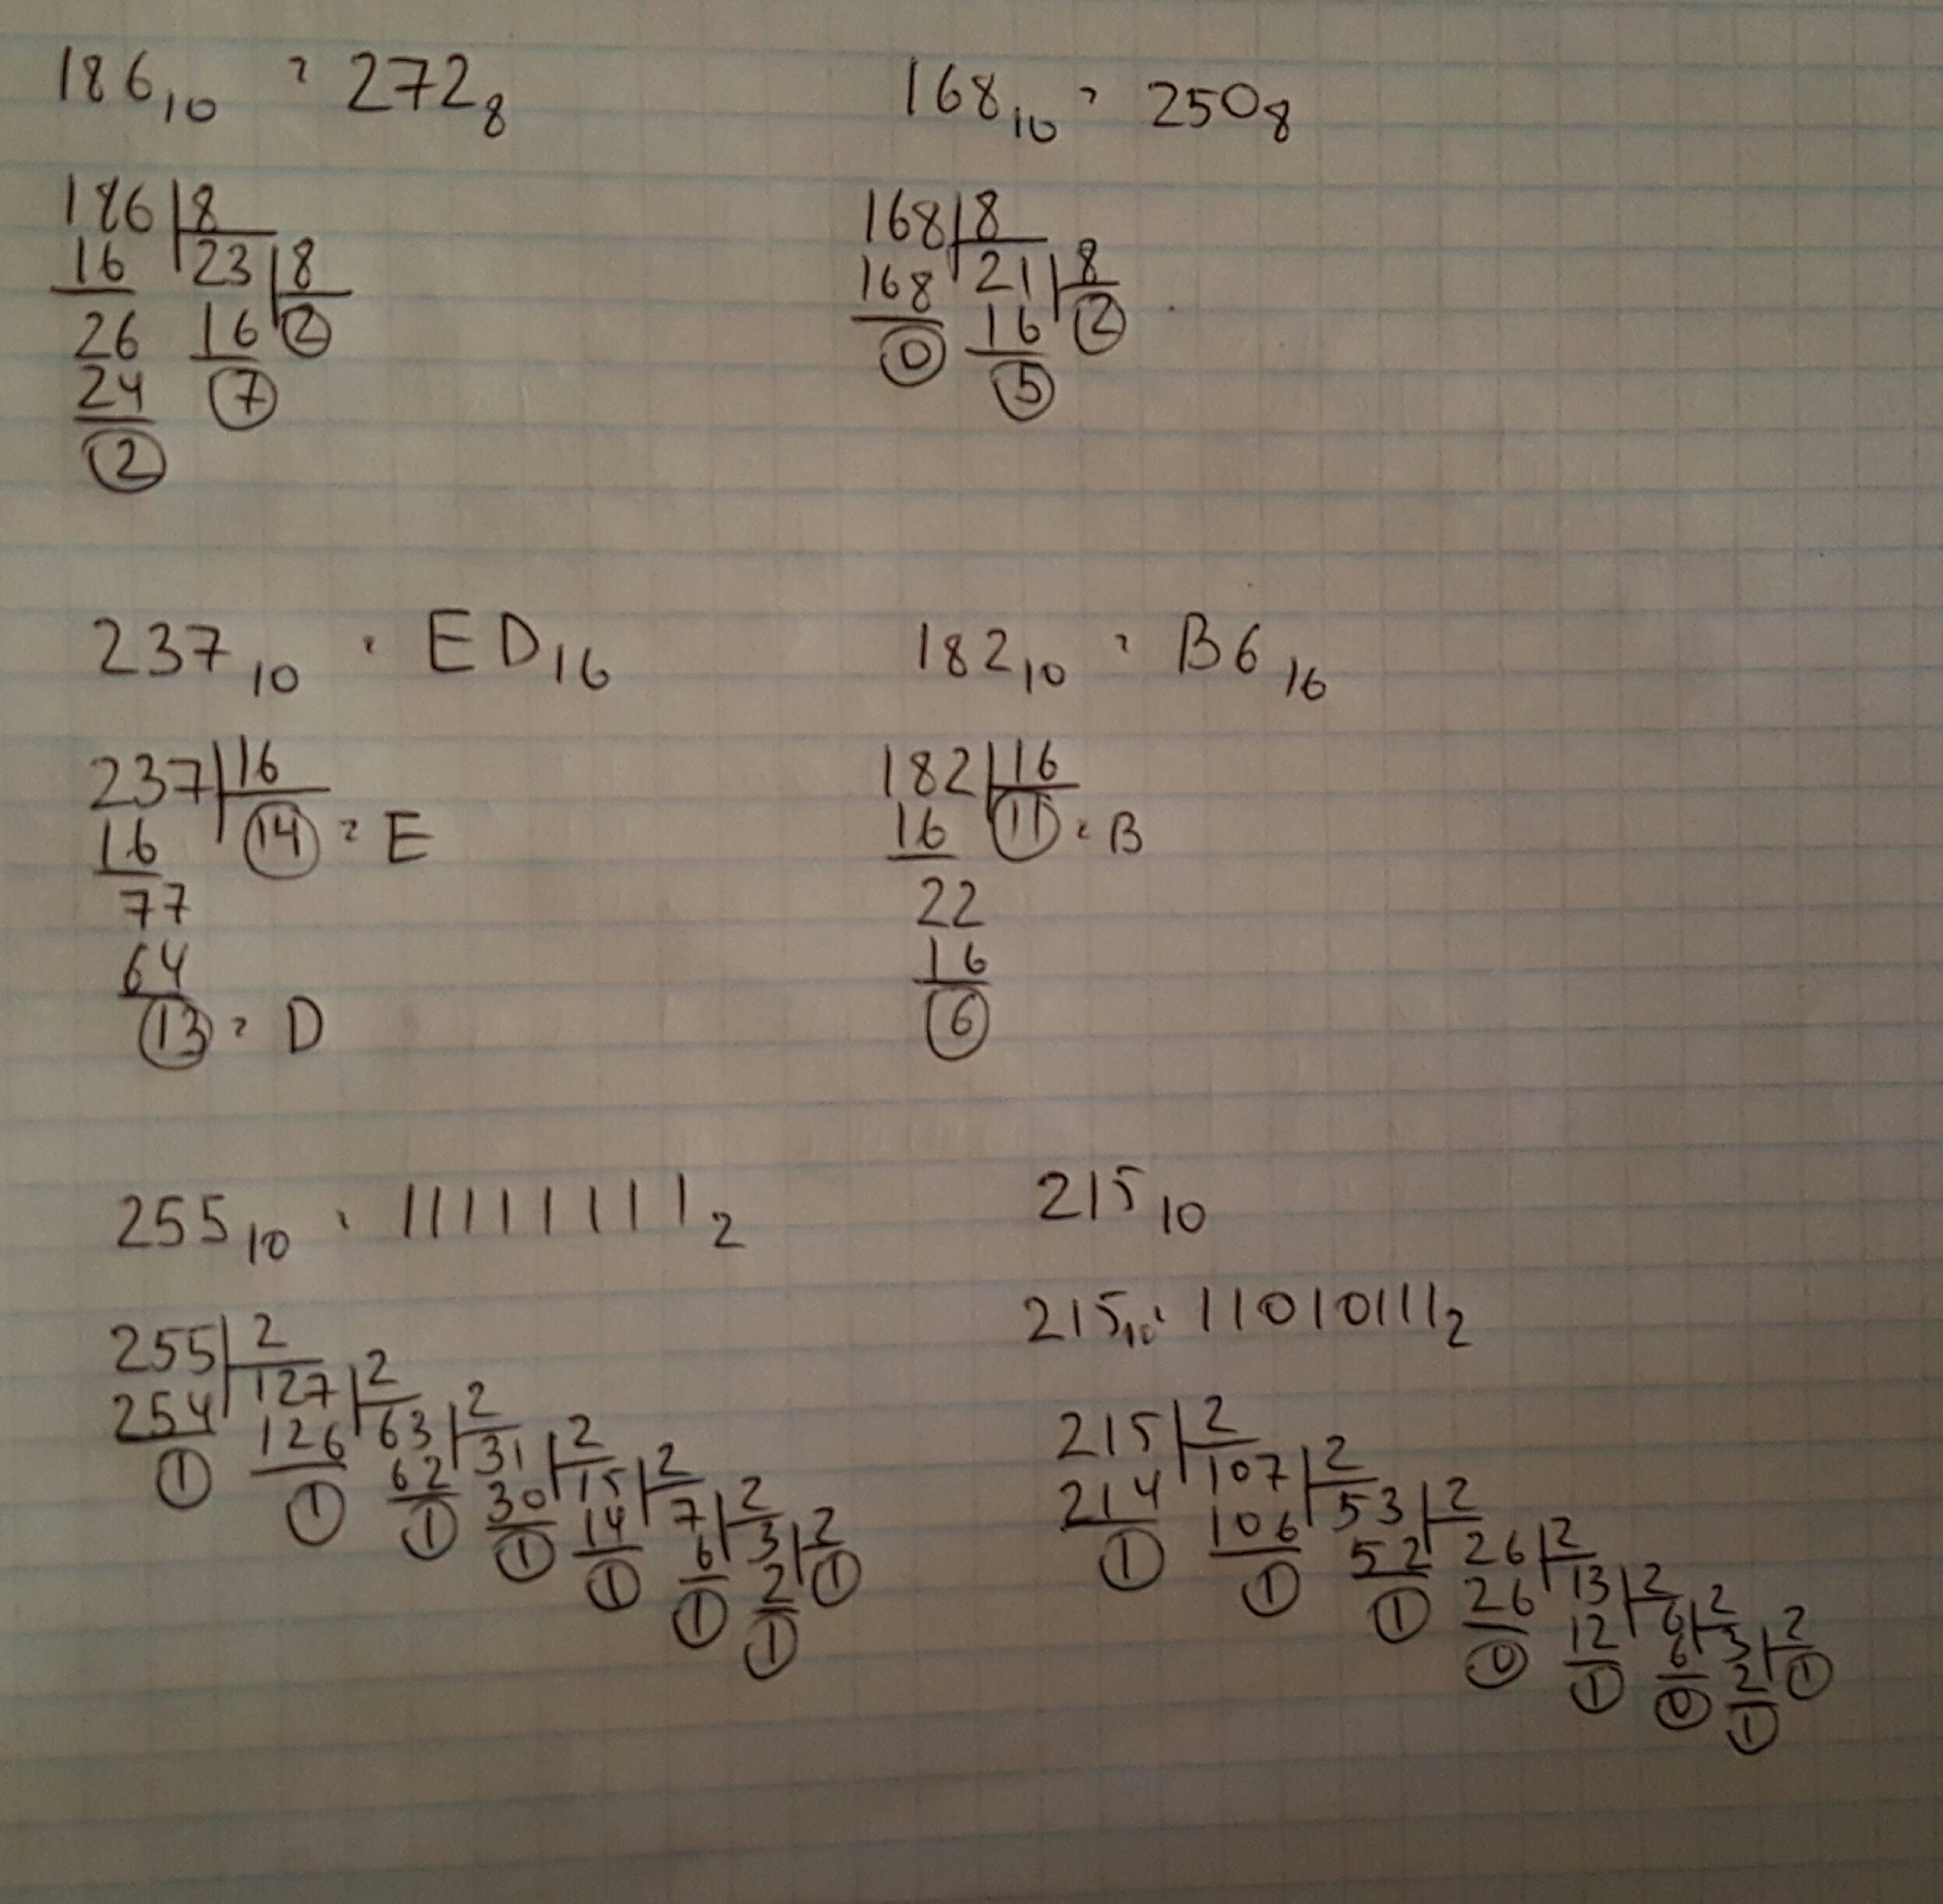 186₁₀ = 272₈
186 8
16 23 8
26 16 2
24 7
2
168₁₀ = 250₈
168 8
168 21 8
0 16 2
5
237₁₀ = ED₁₆
237 16
16 14 = E
77
64
13 = D
182₁₀ = B6₁₆
182 16
16 11 = B
22
16
6
255₁₀ = 11111111₂
255 2
254 127 2
1 126 63 2
1 62 31 2
1 30 15 2
1 14 7 2
1 6 3 2
1 2 1
1
215₁₀
215₁₀ = 11010111₂
215 2
214 107 2
1 106 53 2
1 52 26 2
1 26 13 2
0 12 6 2
1 6 3 2
0 2 1
1